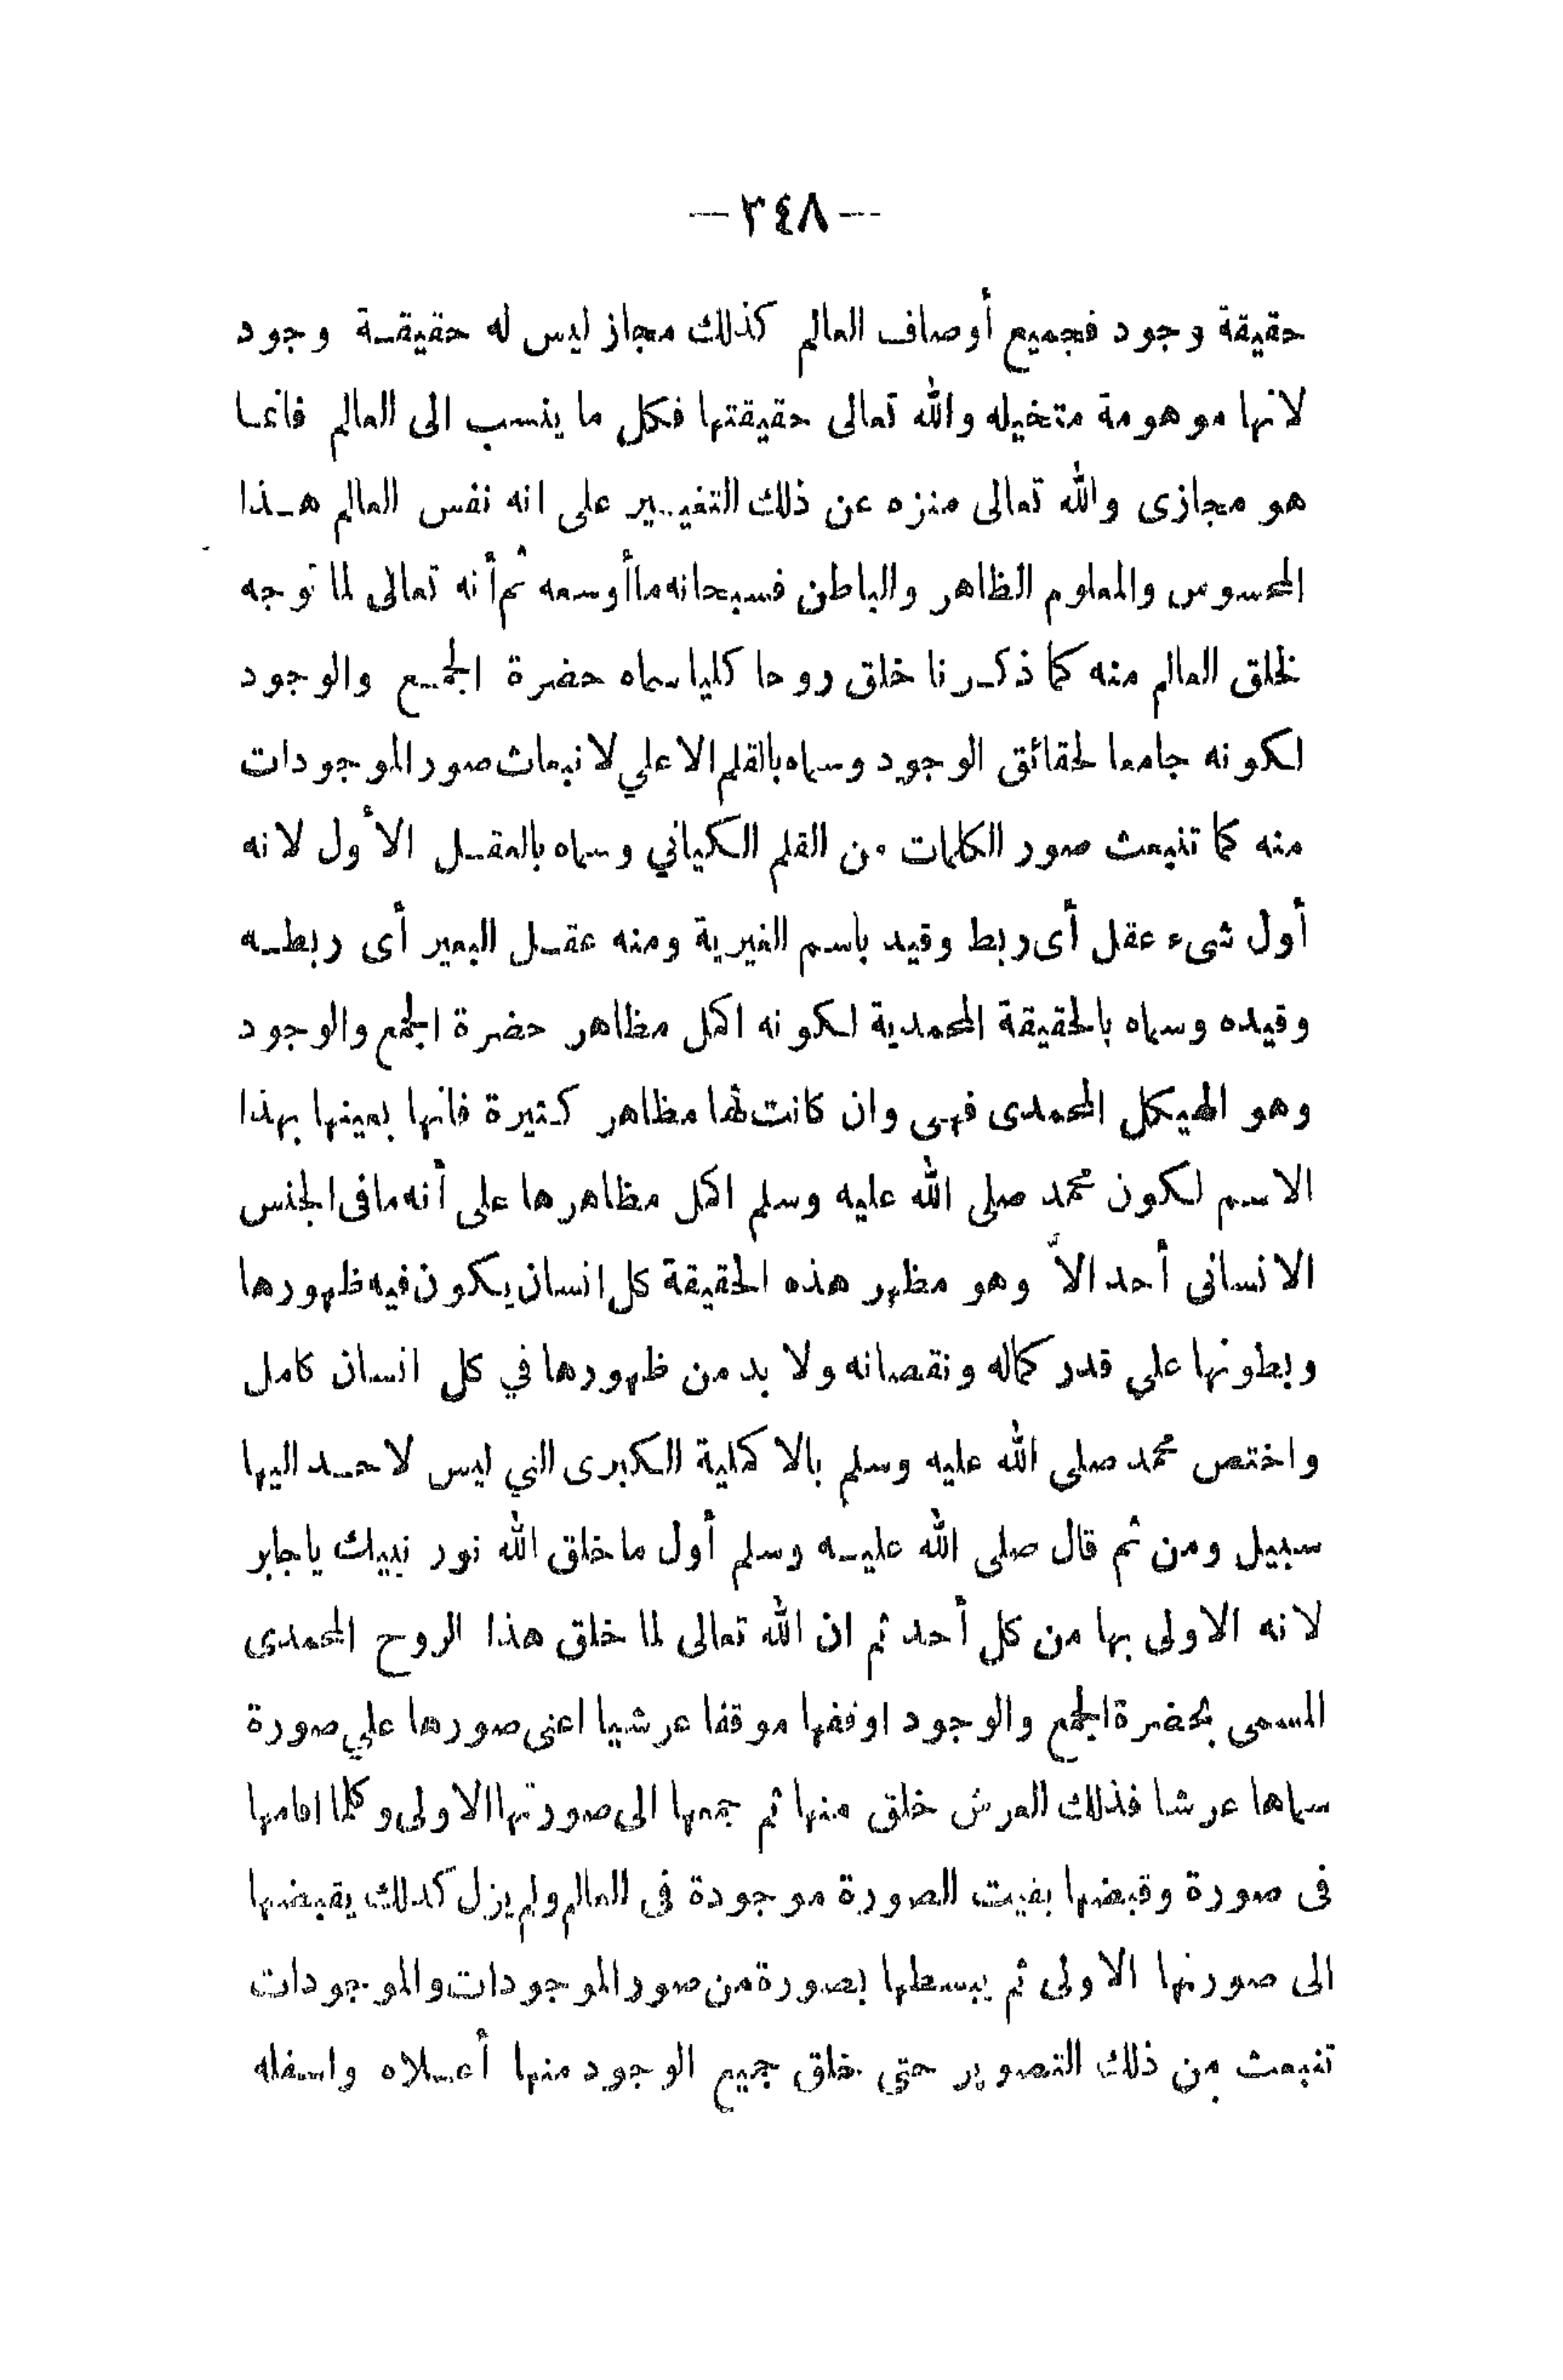 — ٣٤٨ —
حقيقة وجود فجميع أوصاف العالم كذلك مجاز ليس له حقيقة وجود
لانها موهومة متخيله والله تعالى حقيقتها فكل ما ينسب الى العالم فانما
هو مجازى والله تعالى منزه عن ذلك التغيير على انه نفس العالم هذا
المحسوس والمعلوم الظاهر والباطن فسبحانه ما أوسعه ثم أنه تعالى لما توجه
لخلق العالم منه كما ذكرنا خلق روحا كليا سماه حضرة الجمع والوجود
لكونه جامعا لحقائق الوجود وسماه بالقلم الاعلي لانبعاث صور الموجودات
منه كما تنبعث صور الكلمات من القلم الكياني وسماه بالعقل الأول لانه
أول شىء عقل أى ربط وقيد باسم الغيرية ومنه عقل البعير أى ربطه
وقيده وسماه بالحقيقة المحمدية لكونه اكمل مظاهر حضرة الجمع والوجود
وهو الهيكل المحمدى فهى وان كانت لها مظاهر كثيرة فانها بعينها بهذا
الاسم لكون محمد صلى الله عليه وسلم اكمل مظاهرها على أنه ما فى الجنس
الانسانى أحد الاّ وهو مظهر هذه الحقيقة كل انسان يكون فيه ظهورها
وبطونها علي قدر كماله ونقصانه ولا بد من ظهورها في كل انسان كامل
واختص محمد صلى الله عليه وسلم بالاكملية الكبرى التي ليس لاحد اليها
سبيل ومن ثم قال صلى الله عليه وسلم أول ما خلق الله نور نبيك ياجابر
لانه الاولى بها من كل أحد ثم ان الله تعالى لما خلق هذا الروح المحمدى
المسمى بحضرة الجمع والوجود اوقفها موقفا عرشيا اعنى صورها علي صورة
سماها عرشا فذلك العرش خلق منها ثم جمعها الى صورتها الاولى وكلما اقامها
فى صورة وقبضها بقيت الصورة موجودة فى العالم ولم يزل كذلك يقبضها
الى صورتها الاولى ثم يبسطها بصورة من صور الموجودات والموجودات
تنبعث من ذلك التصوير حتى خلق جميع الوجود منها أعلاه واسفله